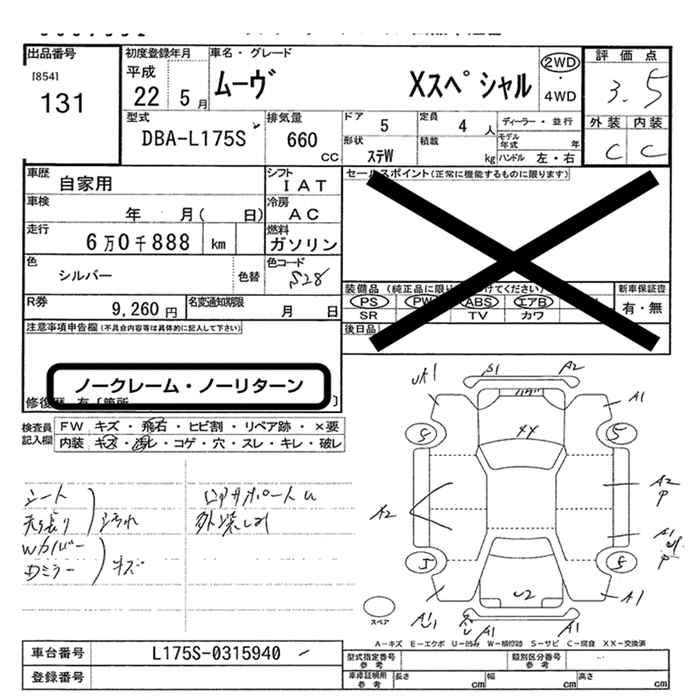 出品番号
[854]
131
初度登録年月
平成
22 5月
車名・グレード
ムーヴ Xスペシャル
2WD
・
4WD
評価点
3.5
外装 内装
C C
型式
DBA-L175S
排気量
660
cc
ドア
5
定員
4 人
ディーラー・並行
モデル年式 年
形状
ステW
積載
kg
ハンドル 左・右
車歴
自家用
シフト
IAT
車検
年 月( 日)
冷房
AC
走行
6万0千888 km
燃料
ガソリン
色
シルバー
色替
色コード
S28
R券
9,260 円
名変通知期限
月 日
セールスポイント(正常に機能するものに限ります)
装備品
新車保証書
有・無
PS PW ABS エアB
SR TV カワ
後日品
注意事項申告欄(不具合内容等は具体的に記入して下さい)
ノークレーム・ノーリターン
検査員記入欄
FW キズ・飛石・ヒビ割・リペア跡・×要
内装 キズ・汚レ・コゲ・穴・スレ・キレ・破レ
シート
天張り
汚れ
Wカバー
Dミラー
キズ
S1 A2
A1
XX
S S
A2
A2
P
A1
P
S S
U2
A1
A1
A1
スペア
A-キズ E-エクボ U-凹み W-補修跡 S-サビ C-腐食 XX-交換済
車台番号
L175S-0315940
登録番号
型式指定番号
参考
類別区分番号
参考
車庫証明用
参考
長さ cm
幅 cm
高さ cm